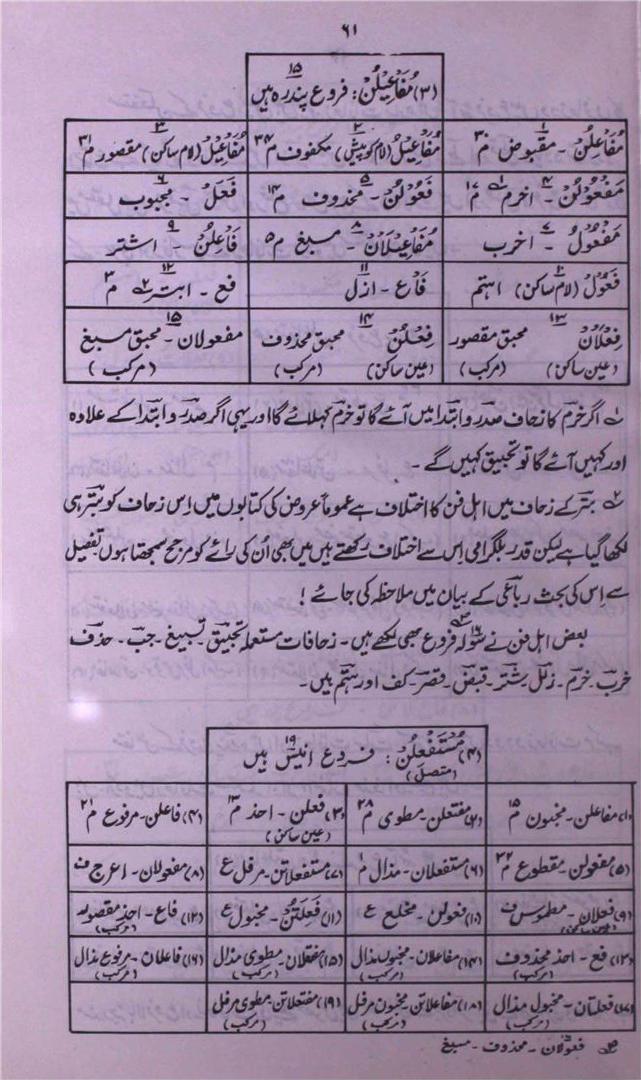 ۶۱
(۳) مُفَاعِیلُنْ: فروع پندرہ ہیں ۱۵
مُفَاعِلُنْ ۱ ۔ مقبوض م ۳۰
مُفَاعِیْلُ ۲ (لام کو پیش) مکفوف م ۳۴
مُفَاعِیْلْ ۳ (لام ساکن) مقصور م ۳۱
مَفْعُوْلُنْ ۴ ۔ اخرم ؂۱ م ۱۷
فَعُوْلُنْ ۵ ۔ محذوف م ۱۴
فَعَلْ ۶ ۔ مجبوب
مَفْعُوْلُ ۷ ۔ اخرب
مُفَاعِیْلَانْ ۸ ۔ مسبغ م ۵
فَاعِلُنْ ۹ ۔ اشتر
فَعُوْلْ ۱۰ (لام ساکن) اہتم
فَاعْ ۱۱ ۔ ازل
فع ۱۲ ۔ ابتر ؂۲ م ۳
فِعْلَانْ ۱۳ محبق مقصور
(عین ساکن) (مرکب)
فِعْلُنْ ۱۴ محبق محذوف
(عین ساکن) (مرکب)
مفعولان ۱۵ ۔ محبق مسبغ
(مرکب)
؂۱ اگر خرم کا زحاف صدر و ابتدا میں آئے گا تو خرم کہلائے گا اور یہی اگر صدر و ابتدا کے علاوہ
اور کہیں آئے گا تو تحبیق کہیں گے ۔
؂۲ بتر کے زحاف میں اہل فن کا اختلاف ہے عموماً عروض کی کتابوں میں اِس زحاف کو بتر ہی
لکھا گیا ہے لیکن قدر بلگرامی اِس سے اختلاف رکھتے ہیں میں بھی اُن کی رائے کو مرجح سمجھتا ہوں تفصیل
سے اس کی بحث رباعی کے بیان میں ملاحظہ کی جائے !
بعض اہل فن نے سولہ ۱۶ ؂۳ فروع بھی لکھے ہیں ۔ زحافات مستعملہ تحبیق ۔ تسبیغ ۔ جب ۔ حذف
خرب ۔ خرم ۔ زلل ۔ شتر ۔ قبض ۔ قصر ۔ کف اور ہتم ہیں ۔
(۴) مُسْتَفْعِلُنْ: فروع انیس ہیں ۱۹
(متصل)
(۱) مفاعلن ۔ مخبون م ۱۵
(۲) مفتعلن ۔ مطوی م ۲۸
(۳) فعلن ۔ احذ م ۱۳
(عین ساکن)
(۴) فاعلن ۔ مرفوع م ۲۱
(۵) مفعولن ۔ مقطوع م ۲۲
(۶) مستفعلان ۔ مذال م
(۷) مستفعلاتن ۔ مرفل ع
(۸) مفعولان ۔ اعرج ف
(۹) فعلان ۔ مطموس ف
(عین ساکن)
(۱۰) فعولن ۔ مخلع ع
(۱۱) فَعِلَتُنْ ۔ مخبول ع
(۱۲) فاع ۔ احذ مقصور
(مرکب)
(۱۳) فع ۔ احذ محذوف
(مرکب)
(۱۴) مفاعلان ۔ مخبون مذال
(مرکب)
(۱۵) مفتعلان ۔ مطوی مذال
(مرکب)
(۱۶) فاعلان ۔ مرفوع مذال
(مرکب)
(۱۷) فعلتان ۔ مخبول مذال
(مرکب)
(۱۸) مفاعلاتن ۔ مخبون مرفل
(مرکب)
(۱۹) مفتعلاتن ۔ مطوی مرفل
(مرکب)
؂۳ فعولان ۔ محذوف ۔ مسبغ